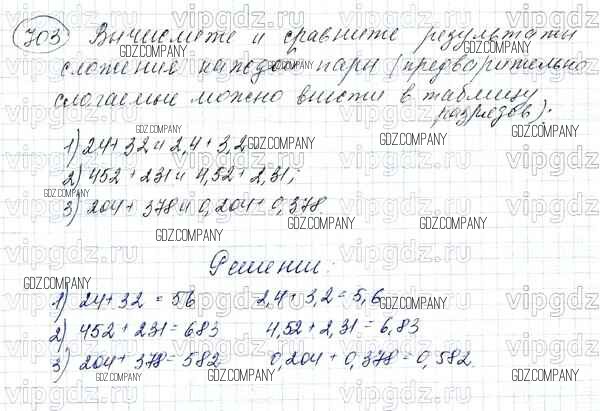 703 Вычислите и сравните результаты
сложения каждой пары (предварительно
слагаемые можно внести в таблицу
разрядов).
1) 24+32 и 2,4+3,2
2) 452+231 и 4,52+2,31;
3) 204+378 и 0,204+0,378.
Решение:
1) 24+32=56 2,4+3,2=5,6
2) 452+231=683 4,52+2,31=6,83
3) 204+378=582 0,204+0,378=0,582.